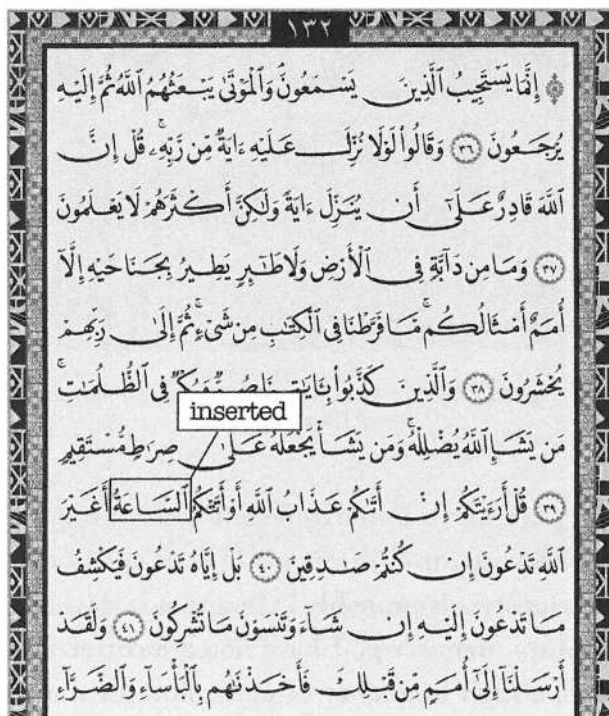 ١٣٢
۞ إِنَّمَا يَسْتَجِيبُ ٱلَّذِينَ يَسْمَعُونَۘ وَٱلْمَوْتَىٰ يَبْعَثُهُمُ ٱللَّهُ ثُمَّ إِلَيْهِ
يُرْجَعُونَ ٣٦ وَقَالُوا۟ لَوْلَا نُزِّلَ عَلَيْهِ ءَايَةٌ مِّن رَّبِّهِۦۚ قُلْ إِنَّ
ٱللَّهَ قَادِرٌ عَلَىٰٓ أَن يُنَزِّلَ ءَايَةً وَلَٰكِنَّ أَكْثَرَهُمْ لَا يَعْلَمُونَ
٣٧ وَمَا مِن دَآبَّةٍ فِى ٱلْأَرْضِ وَلَا طَٰٓئِرٍ يَطِيرُ بِجَنَاحَيْهِ إِلَّآ
أُمَمٌ أَمْثَالُكُمۚ مَّا فَرَّطْنَا فِى ٱلْكِتَٰبِ مِن شَىْءٍۚ ثُمَّ إِلَىٰ رَبِّهِمْ
يُحْشَرُونَ ٣٨ وَٱلَّذِينَ كَذَّبُوا۟ بِـَٔايَٰتِنَا صُمٌّ وَبُكْمٌ فِى ٱلظُّلُمَٰتِۗ
inserted
مَن يَشَإِ ٱللَّهُ يُضْلِلْهُ وَمَن يَشَأْ يَجْعَلْهُ عَلَىٰ صِرَٰطٍ مُّسْتَقِيمٍ
٣٩ قُلْ أَرَءَيْتَكُمْ إِنْ أَتَىٰكُمْ عَذَابُ ٱللَّهِ أَوْ أَتَتْكُمُ ٱلسَّاعَةُ أَغَيْرَ
ٱللَّهِ تَدْعُونَ إِن كُنتُمْ صَٰدِقِينَ ٤٠ بَلْ إِيَّاهُ تَدْعُونَ فَيَكْشِفُ
مَا تَدْعُونَ إِلَيْهِ إِن شَآءَ وَتَنسَوْنَ مَا تُشْرِكُونَ ٤١ وَلَقَدْ
أَرْسَلْنَآ إِلَىٰٓ أُمَمٍ مِّن قَبْلِكَ فَأَخَذْنَٰهُم بِٱلْبَأْسَآءِ وَٱلضَّرَّآءِ